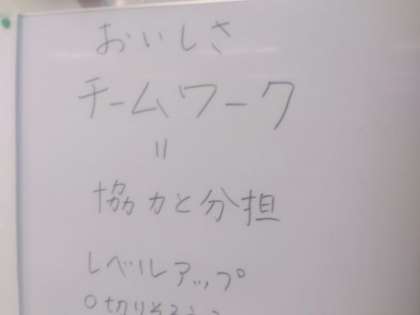 おいしさ
チームワーク
=
協力と分担
レベルアップ
○切りそろ